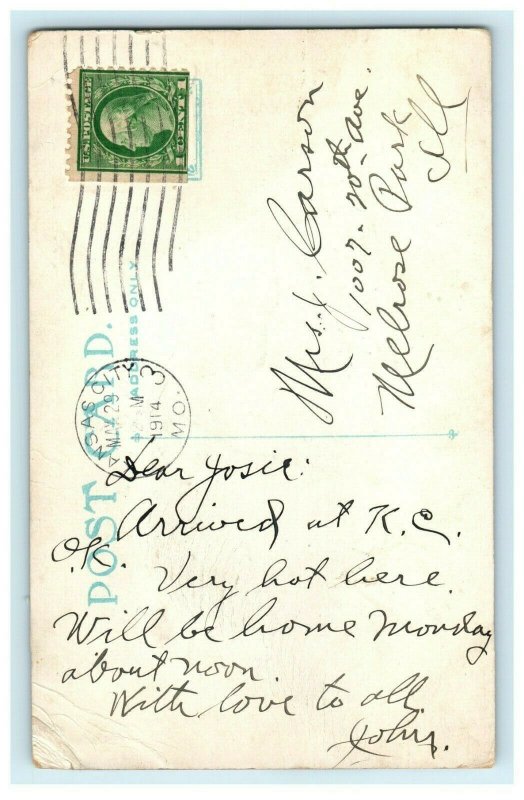 POST CARD.
ADDRESS ONLY
U.S. POSTAGE
1 CENT 1
KANSAS CITY
MAY 29
12 M
1914
MO.
3
Mrs. J. Carson
1007- 20th Ave.
Melrose Park
Ill
Dear Josie:
Arrived at K.C.
O.K.
Very hot here.
Will be home Monday
about noon.
With love to all.
John.